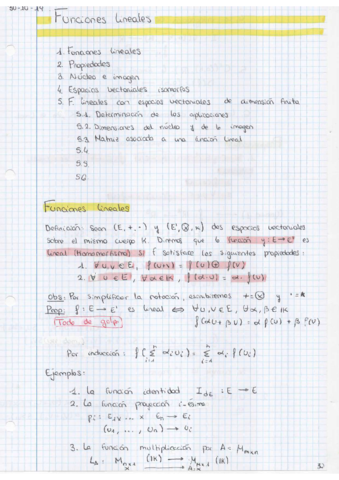 30-10-14
Funciones lineales
1. Funciones lineales
2. Propiedades
3. Núcleo e imagen
4. Espacios vectoriales isomorfos
5. F. lineales con espacios vectoriales de dimensión finita
5.1. Determinación de las aplicaciones
5.2. Dimensiones del núcleo y de la imagen
5.3. Matriz asociada a una función lineal
5.4
5.5.
5.6.
Funciones lineales
Definición: Sean (E, +, ·) y (E', ⊕, ) dos espacios vectoriales
sobre el mismo cuerpo K. Diremos que la función f: E → E' es
lineal (Homomorfismo) si f satisface las siguientes propiedades:
1. ∀ u, v ∈ E, f(u+v) = f(u) ⊕ f(v)
2. ∀ u ∈ E, ∀ α ∈ K, f(αu) = α · f(u)
Obs: Por simplificar la notación, escribiremos + = ⊕ y
Prop: f: E → E' es lineal ⟺ ∀ u, v ∈ E, ∀ α, β ∈ K
(Todo de golpe) f(αu + βv) = α f(u) + β f(v)
Por inducción: f(Σ αi ui) = Σ αi f(ui)
Ejemplos:
1. La función identidad IdE : E → E
2. La función proyección i-ésima
pi: E1 x ... x En → Ei
(u1, ..., un) → ui
3. La función multiplicación por A = Mmxn
LA = Mnx1 (K) → Mmx1 (K)